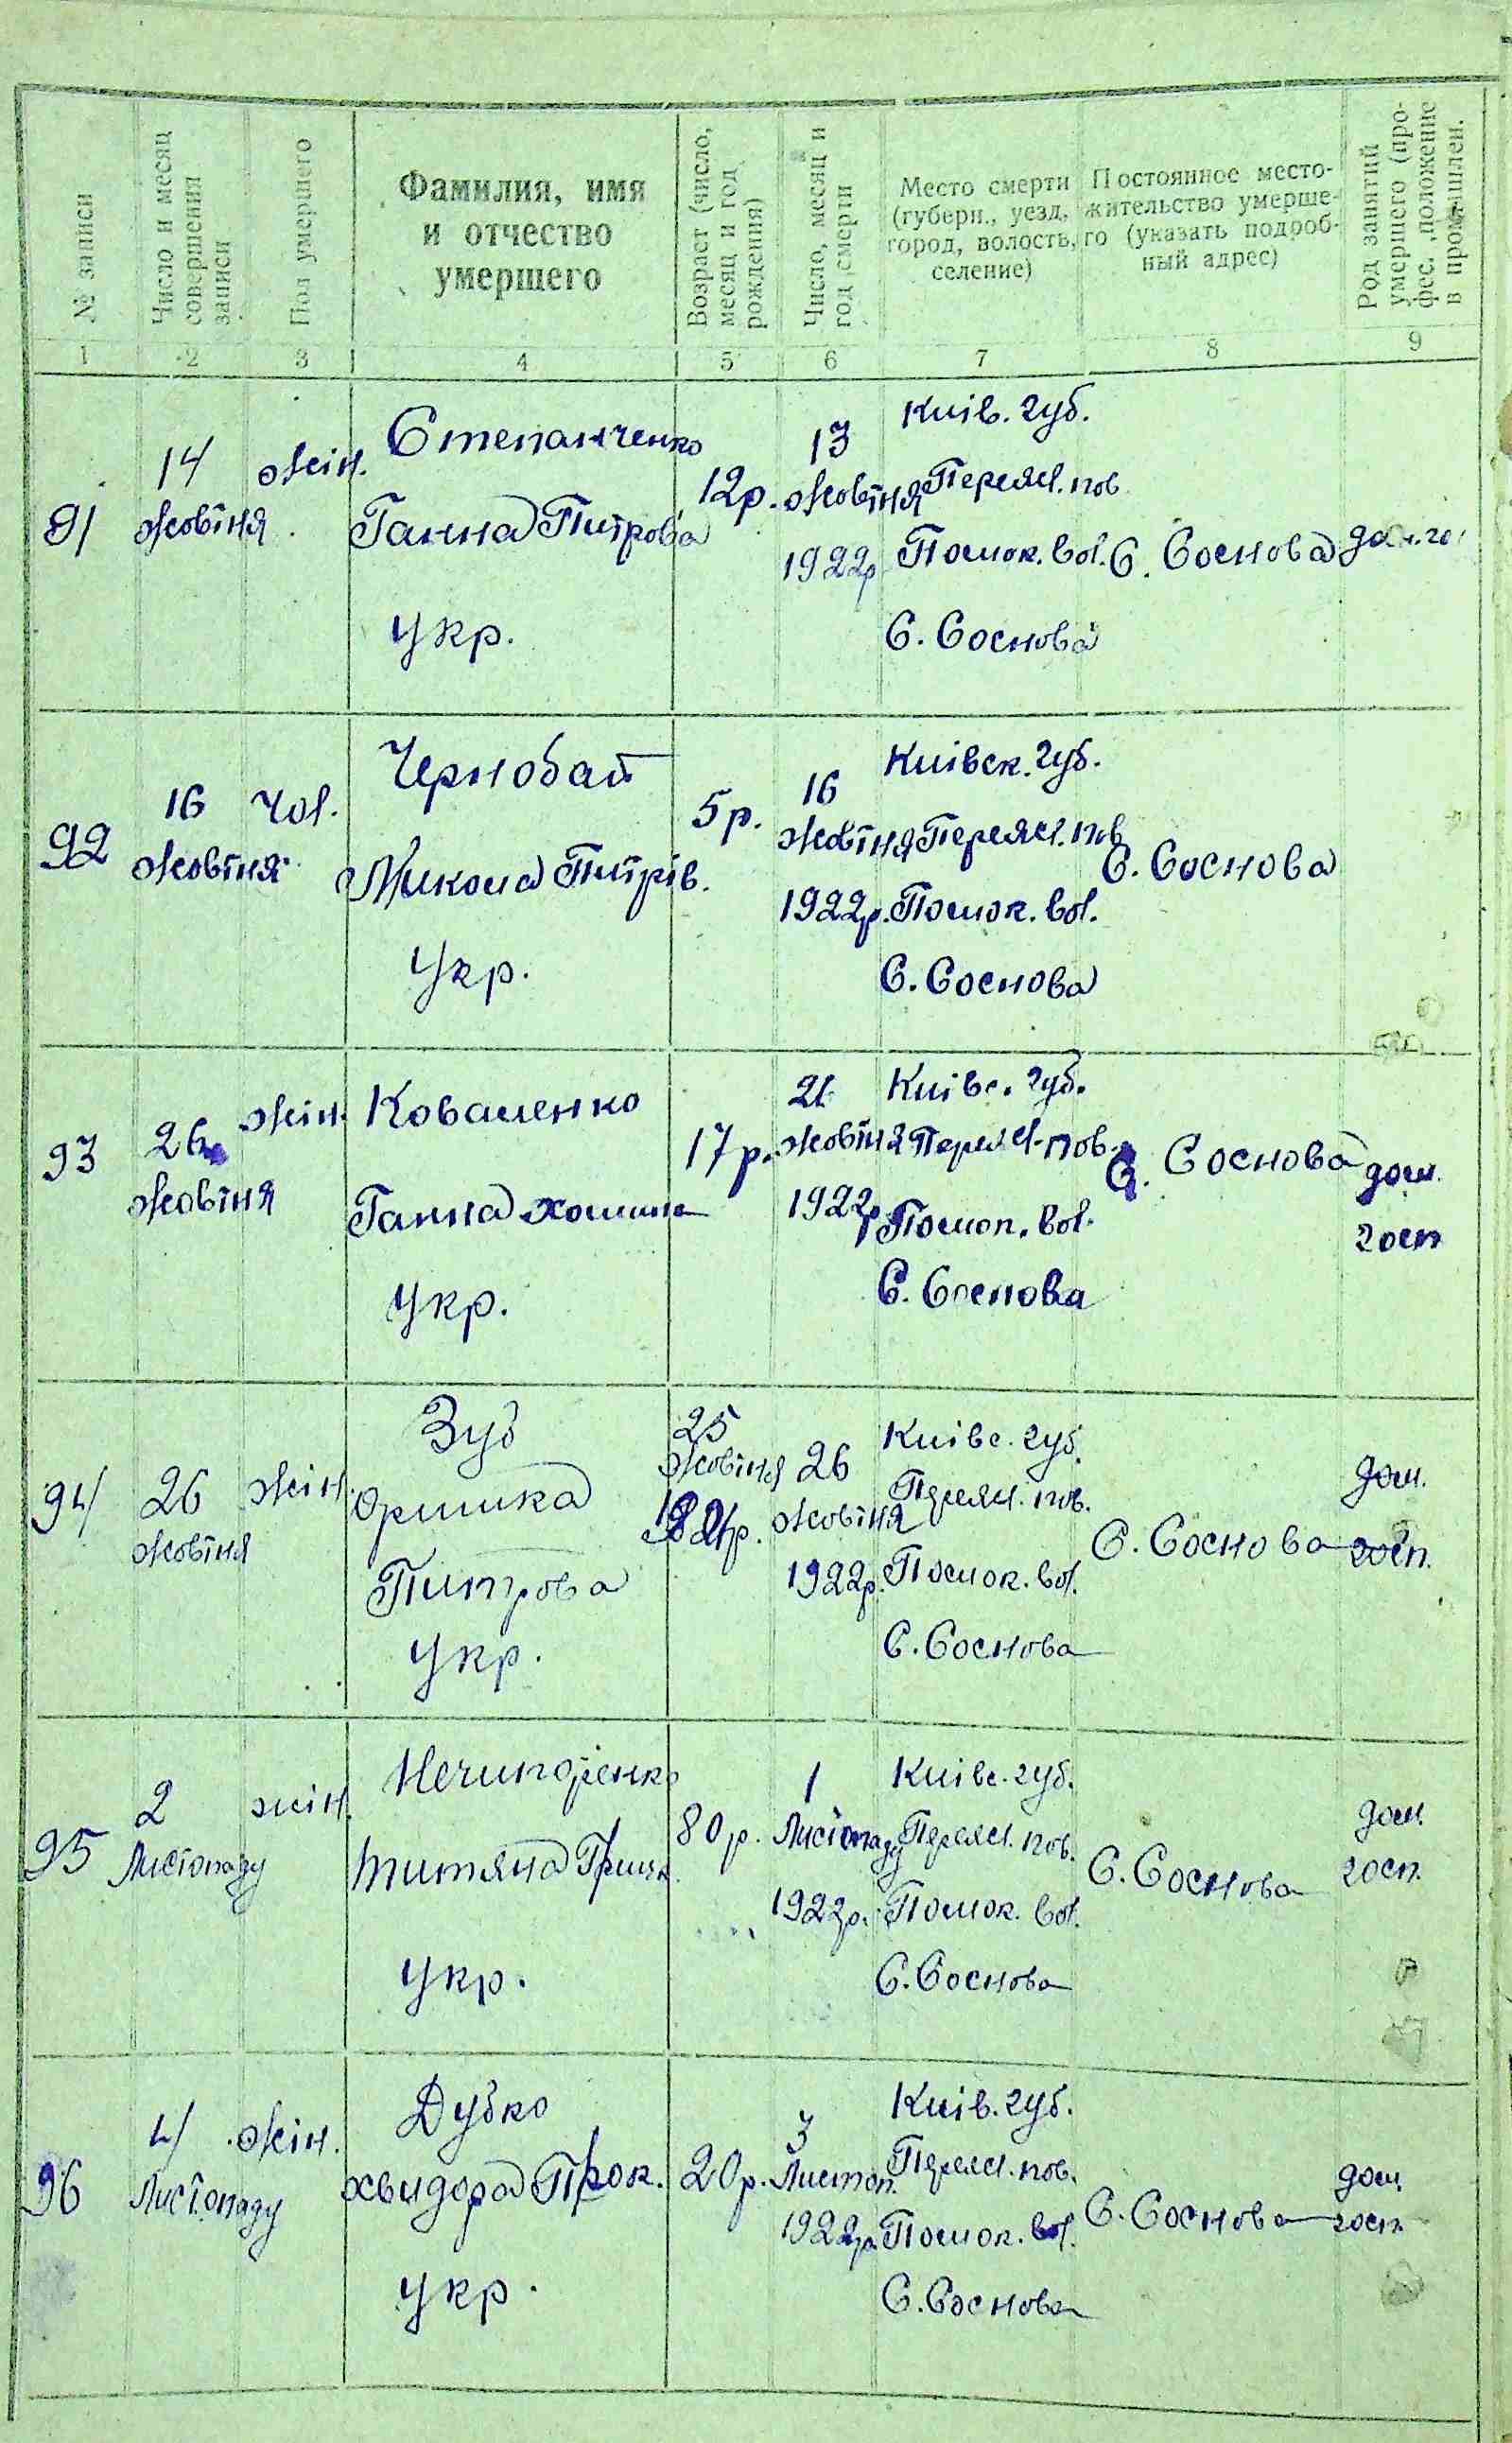 № записи
Число и месяц совершения записи
Пол умершего
Фамилия, имя
и отчество
умершего
Возраст (число, месяц и год рождения)
Число, месяц и год смерти
Место смерти
(губерн., уезд,
город, волость,
селение)
Постоянное место-
жительство умерше-
го (указать подроб-
ный адрес)
Род занятий умершего (про-
фес., положение в промышлен.
1 2 3 4 5 6 7 8 9
91
14
Жовтня
жін.
Степанченко
Ганна Питрова
укр.
12р.
13
Жовтня
1922р
Київ. губ.
Переясл. пов
Помок. вол.
С. Соснова
С. Соснова
92
16
Жовтня
Чол.
Чернобай
Микола Питрів.
Укр.
5р.
16
Жовтня
1922р.
Київск. губ.
Переясл. пов
Помок. вол.
С. Соснова
С. Соснова
93
26
Жовтня
жін.
Коваленко
Ганна
укр.
17р.
21
Жовтня
1922р
Київс. губ.
Переясл. пов.
вол.
С. Соснова
С. Соснова
дом.
госп
94
26
Жовтня
жін.
Зуб
Оришка
Питрова
укр.
25
Жовтня
26
Жовтня
1922р.
Київс. губ.
Переясл. пов.
Помок. вол.
С. Соснова
С. Соснова
дом.
госп.
95
2
Листопаду
жін.
Нечипоренко
Титяна
укр.
80р.
1
Листопаду
1922р.
Київс. губ.
Переясл. пов.
Помок. вол.
С. Соснова
С. Соснова
дом.
госп.
96
4
Листопаду
жін.
Дубко
Хвидора Прок.
укр.
20р.
3
Листоп.
1922р.
Київ. губ.
Переясл. пов.
Помок. вол.
С. Соснова
С. Соснова
дом.
госп.